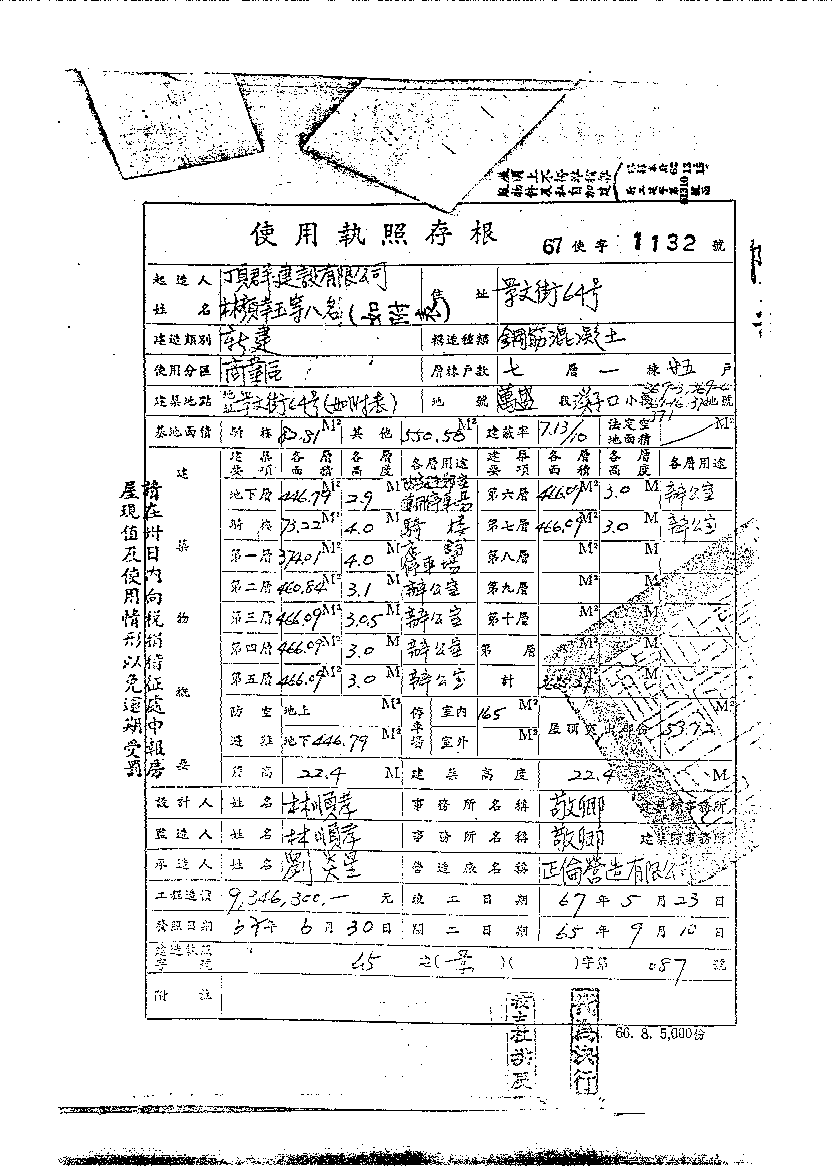 使用執照存根
67使字 1132 號
起造人 頂群建設有限公司
姓名 等八名
住址 景文街64号
建造類別 新建 構造種類 鋼筋混凝土
使用分區 商業區 層棟戶數 七 層 一 棟 廿五 戶
建築地點 地址 景文街64号(如附表) 地號 萬盛 段 溪子口 小段 地號
基地面積 騎樓 82.81 M² 其他 550.50 M² 建蔽率 7.13/10 法定空地面積 M²
建築概要
建築要項 各層面積 各層高度 各層用途 建築要項 各層面積 各層高度 各層用途
地下層 446.79 M² 2.9 M 第六層 466.09 M² 3.0 M 辦公室
騎樓 73.22 M² 4.0 M 騎樓 第七層 466.09 M² 3.0 M 辦公室
第一層 374.01 M² 4.0 M 停車場 第八層 M² M
第二層 460.84 M² 3.1 M 辦公室 第九層 M² M
第三層 466.09 M² 3.05 M 辦公室 第十層 M² M
第四層 466.09 M² 3.0 M 辦公室 第 層 M² M
第五層 466.09 M² 3.0 M 辦公室 計 M² M
防空避難 地上 M² 停車場 室內 165 M² 屋頂突出部份 53.72 M²
地下 446.79 M² 室外 M²
簷高 22.4 M 建築高度 22.4 M
設計人 姓名 林順孝 事務所名稱 敬鄉 建築師事務所
監造人 姓名 林順孝 事務所名稱 敬鄉 建築師事務所
承造人 姓名 劉 營造廠名稱 正倫營造有限公司
工程造價 9,346,300.— 元 竣工日期 67年5月23日
發照日期 67年6月30日 開工日期 65年9月10日
建造執照字號 65 建(景)( )字第 087 號
附註
請在卅日內向稅捐稽征處申報房
屋現值及使用情形以免逾期受罰
66. 8. 5,000份
代為決行